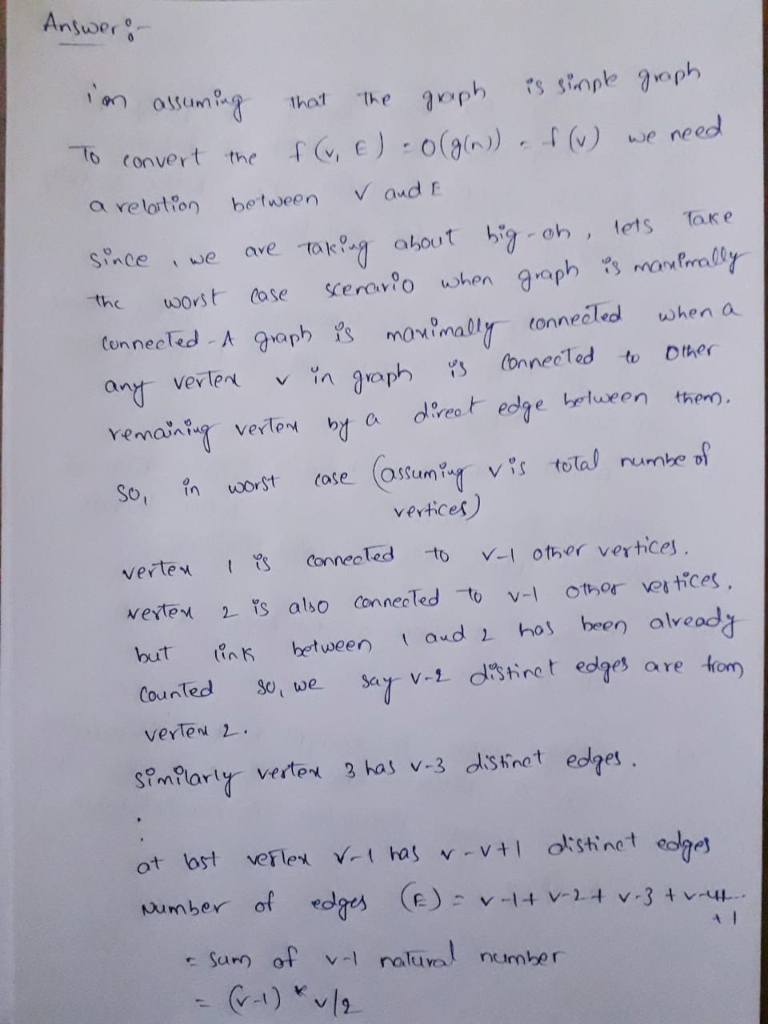 Answer:-
i'm assuming that the graph is simple graph
To convert the f(v, E) = O(g(n)) = f(v) we need
a relation between v and E
since, we are taking about big-oh, lets Take
the worst case scenario when graph is maximally
connected - A graph is maximally connected when a
any vertex v in graph is connected to other
remaining vertex by a direct edge between them.
so, in worst case (assuming v is total numbe of
vertices)
vertex 1 is connected to v-1 other vertices.
vertex 2 is also connected to v-1 other vertices,
but link between 1 and 2 has been already
counted so, we say v-2 distinct edges are from
vertex 2.
similarly vertex 3 has v-3 distinct edges.
:
at last vertex v-1 has v-v+1 distinct edges
Number of edges (E) = v-1+ v-2+ v-3 + v-4+..
+1
= sum of v-1 natural number
= (v-1) * v/2